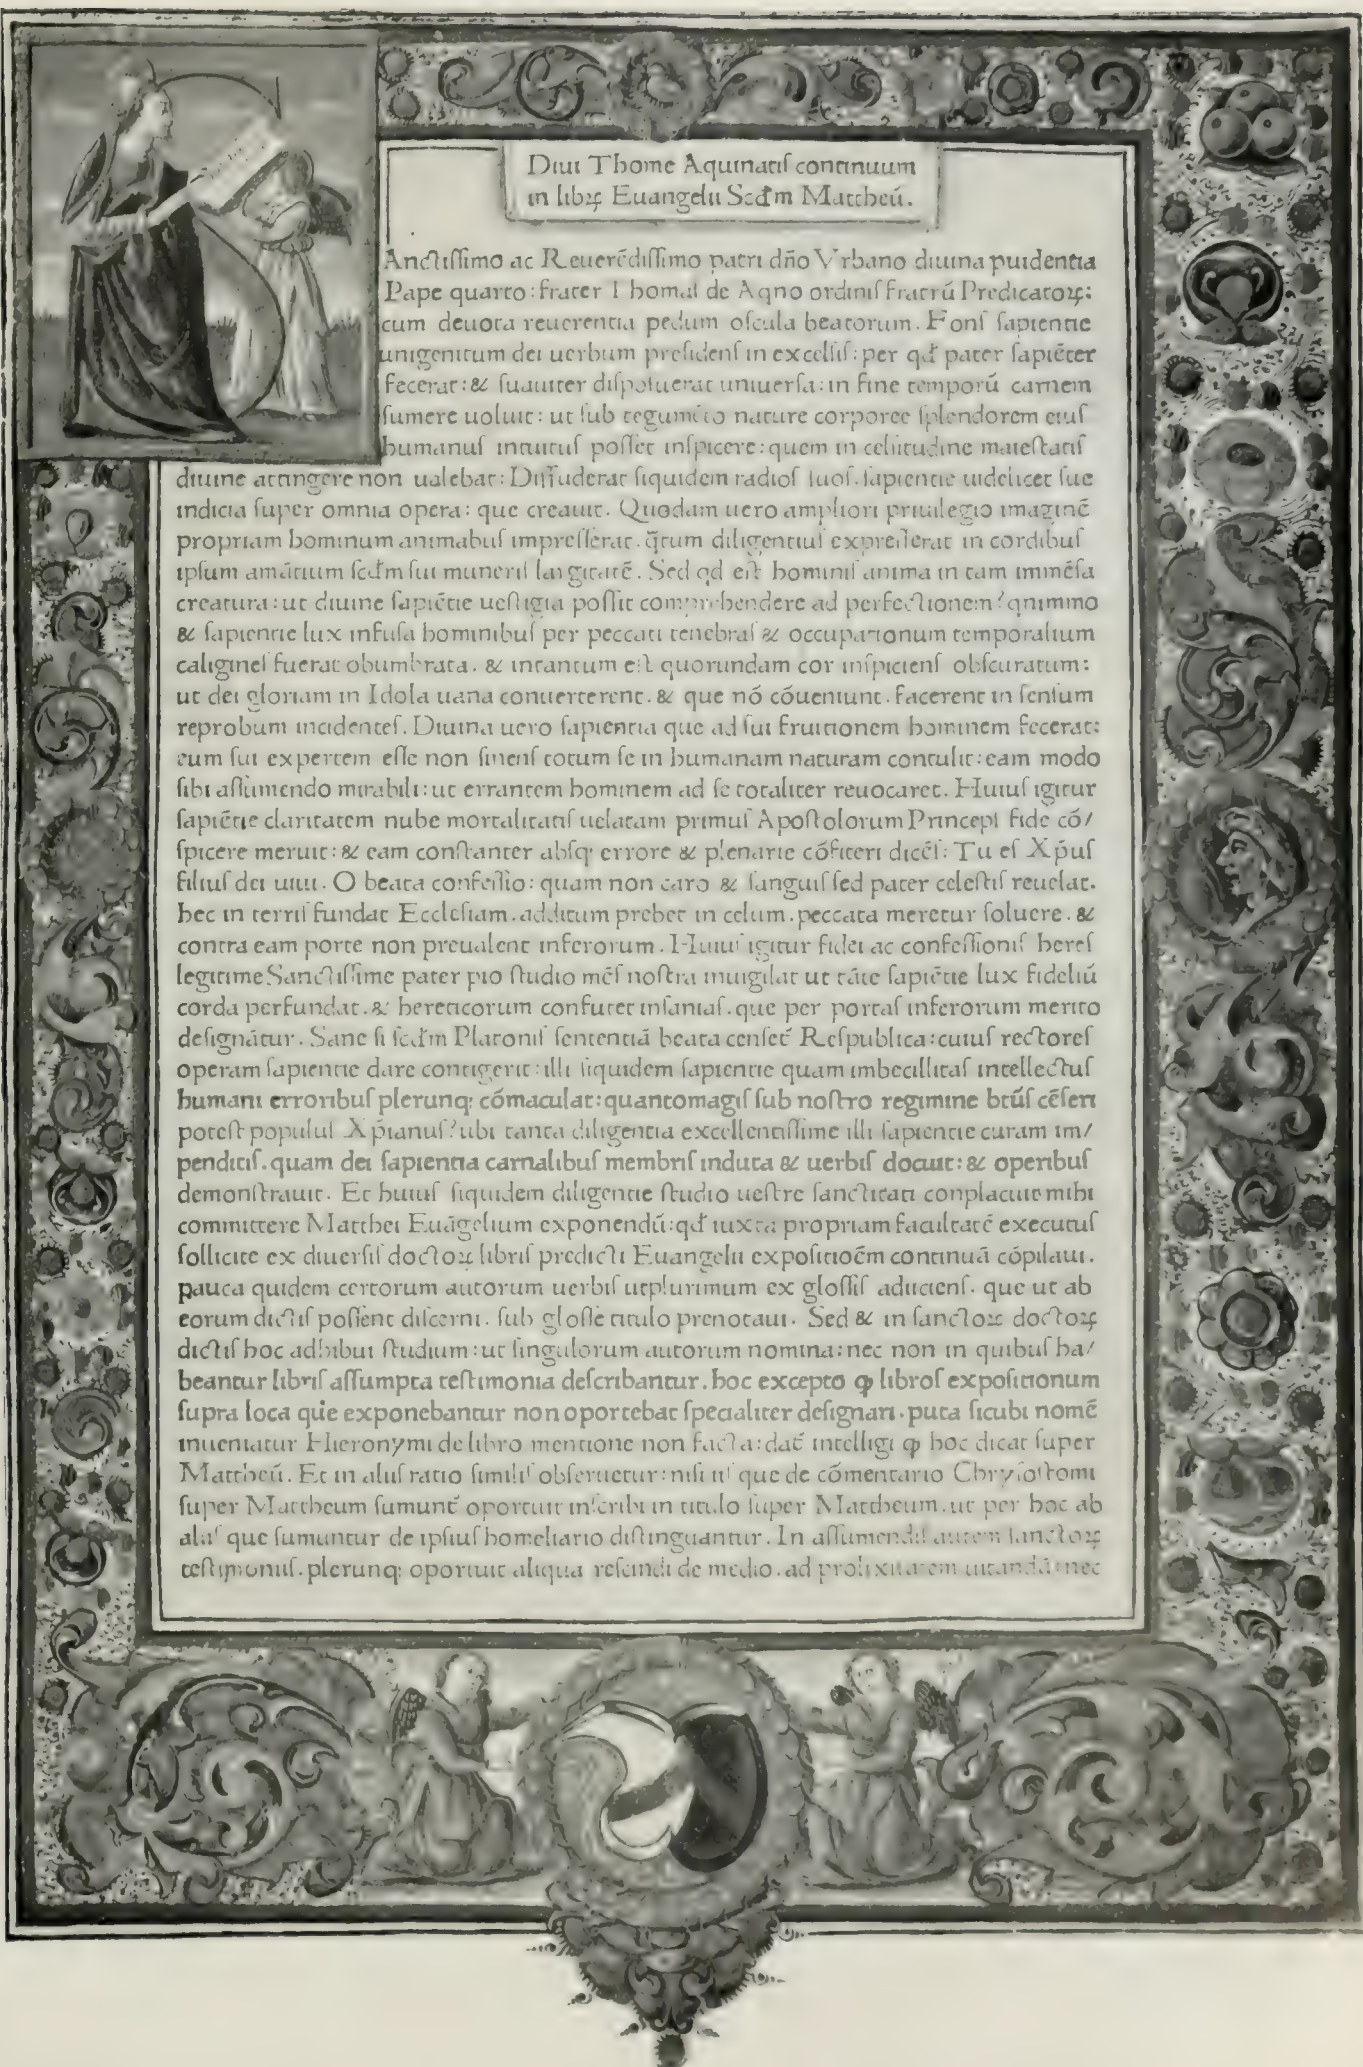 Diui Thome Aquinatiſ continuum
in libꝝ Euangelii Scd̄m Mattheū.
Anctiſſimo ac Reuerēdiſſimo patri dño Vrbano diuina puidentia
Pape quarto: frater Thomaſ de Aqno ordiniſ fratrū Predicatoꝝ:
cum deuota reuerentia pedum oſcula beatorum. Fonſ ſapientie
unigenitum dei uerbum preſidenſ in excelſiſ: per qd̄ pater ſapiēter
fecerat: & ſuauiter diſpoſuerat uniuerſa: in fine temporū carnem
ſumere uoluit: ut ſub tegumēto nature corporee ſplendorem eiuſ
humanuſ intuituſ poſſet inſpicere: quem in celſitudine maieſtatiſ
diuine attingere non ualebat: Diffuderat ſiquidem radioſ ſuoſ. ſapientie uidelicet ſue
indicia ſuper omnia opera: que creauit. Quodam uero ampliori priuilegio imaginē
propriam hominum animabuſ impreſſerat. q̄tum diligentiuſ expreſſerat in cordibuſ
ipſum amātium ſcd̄m ſui muneriſ largitatē. Sed qd eſt hominiſ anima in tam immēſa
creatura: ut diuine ſapiētie ueſtigia poſſit comprehendere ad perfectionem? qnimmo
& ſapientie lux infuſa hominibuſ per peccati tenebraſ & occupationum temporalium
caligineſ fuerat obumbrata. & intantum eſt quorundam cor inſpicienſ obſcuratum:
ut dei gloriam in Idola uana conuerterent. & que nō cōueniunt. facerent in ſenſum
reprobum incidenteſ. Diuina uero ſapientia que ad ſui fruitionem hominem fecerat:
eum ſui expertem eſſe non ſinenſ totum ſe in humanam naturam contulit: eam modo
ſibi aſſumendo mirabili: ut errantem hominem ad ſe totaliter reuocaret. Huiuſ igitur
ſapiētie claritatem nube mortalitatiſ uelatam primuſ Apoſtolorum Princepſ fide cō/
ſpicere meruit: & eam conſtanter abſq; errore & plenarie cōfiteri dicēſ: Tu eſ Xp̄uſ
filiuſ dei uiui. O beata confeſſio: quam non caro & ſanguiſ ſed pater celeſtiſ reuelat.
hec in terriſ fundat Eccleſiam. additum prebet in celum. peccata meretur ſoluere. &
contra eam porte non preualent inferorum. Huiuſ igitur fidei ac confeſſioniſ hereſ
legitime Sanctiſſime pater pio ſtudio mēſ noſtra inuigilat ut tāte ſapiētie lux fideliū
corda perfundat. & hereticorum confutet inſaniaſ. que per portaſ inferorum merito
deſignātur. Sane ſi ſcd̄m Platoniſ ſententiā beata cenſet᷑ Reſpublica: cuiuſ rectoreſ
operam ſapientie dare contigerit: illi ſiquidem ſapientie quam imbecillitaſ intellectuſ
humani erroribuſ plerunq; cōmaculat: quantomagiſ ſub noſtro regimine btūſ cēſeri
poteſt populuſ Xp̄ianuſ? ubi tanta diligentia excellentiſſime illi ſapientie curam im/
penditiſ. quam dei ſapientia carnalibuſ membriſ induta & uerbiſ docuit: & operibuſ
demonſtrauit. Et huiuſ ſiquidem diligentie ſtudio ueſtre ſanctitati conplacuit mihi
committere Matthei Euāgelium exponendū: qd̄ iuxta propriam facultatē executuſ
ſollicite ex diuerſiſ doctoꝝ libriſ predicti Euangelii expoſitioēm continuā cōpilaui.
pauca quidem certorum autorum uerbiſ utplurimum ex gloſſiſ adiicienſ. que ut ab
eorum dictiſ poſſent diſcerni. ſub gloſſe titulo prenotaui. Sed & in ſanctoꝝ doctoꝝ
dictiſ hoc adhibui ſtudium: ut ſingulorum autorum nomina: nec non in quibuſ ha/
beantur libriſ aſſumpta teſtimonia deſcribantur. hoc excepto ꝙ libroſ expoſitionum
ſupra loca que exponebantur non oportebat ſpecialiter deſignari. puta ſicubi nomē
inueniatur Hieronymi de libro mentione non facta: dat᷑ intelligi ꝙ hoc dicat ſuper
Mattheū. Et in aliiſ ratio ſimiliſ obſeruetur: niſi iiſ que de cōmentario Chryſoſtomi
ſuper Mattheum ſumunt᷑ oportuit inſcribi in titulo ſuper Mattheum. ut per hoc ab
aliiſ que ſumuntur de ipſiuſ homeliario diſtinguantur. In aſſumendiſ autem ſanctoꝝ
teſtimoniiſ. plerunq; oportuit aliqua reſcindi de medio. ad prolixitatem uitandā: nec